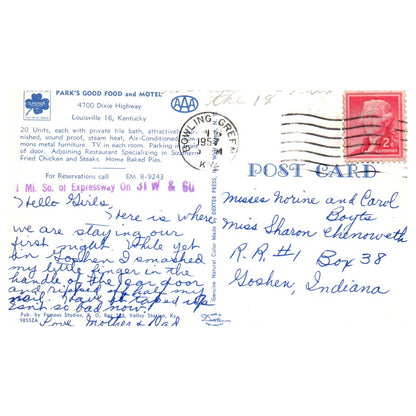 PARK'S GOOD FOOD and MOTEL
4700 Dixie Highway
Louisville 16, Kentucky
20 Units, each with private tile bath, attractively
nished, sound proof, steam heat, Air-Conditioned
mons metal furniture. TV in each room. Parking in
of door. Adjoining Restaurant Specializing in Southern
Fried Chicken and Steaks. Home Baked Pies.
For Reservations call EM 8-9243
1 Mi. So. of Expressway On 31W & 60
AAA
the 18
BOWLING GREEN
1957
PM
KY.
2¢
POST CARD
Hello Girls,
Here is where
we are staying our
first night. While yet
in Goshen I smashed
my little finger in the
handle of the car door
and ripped off half my
nail. Have it taped up
Isn't so bad now!
Love Mother & Dad
Pub. by Famous Studios, P. O. Box Valley Station, Ky.
98552
Genuine Natural Color Made by DEXTER PRESS,
Dexter
Misses Norine and Carol
Boyts
Miss Sharon Chenoweth
R.R. #1 Box 38
Goshen, Indiana